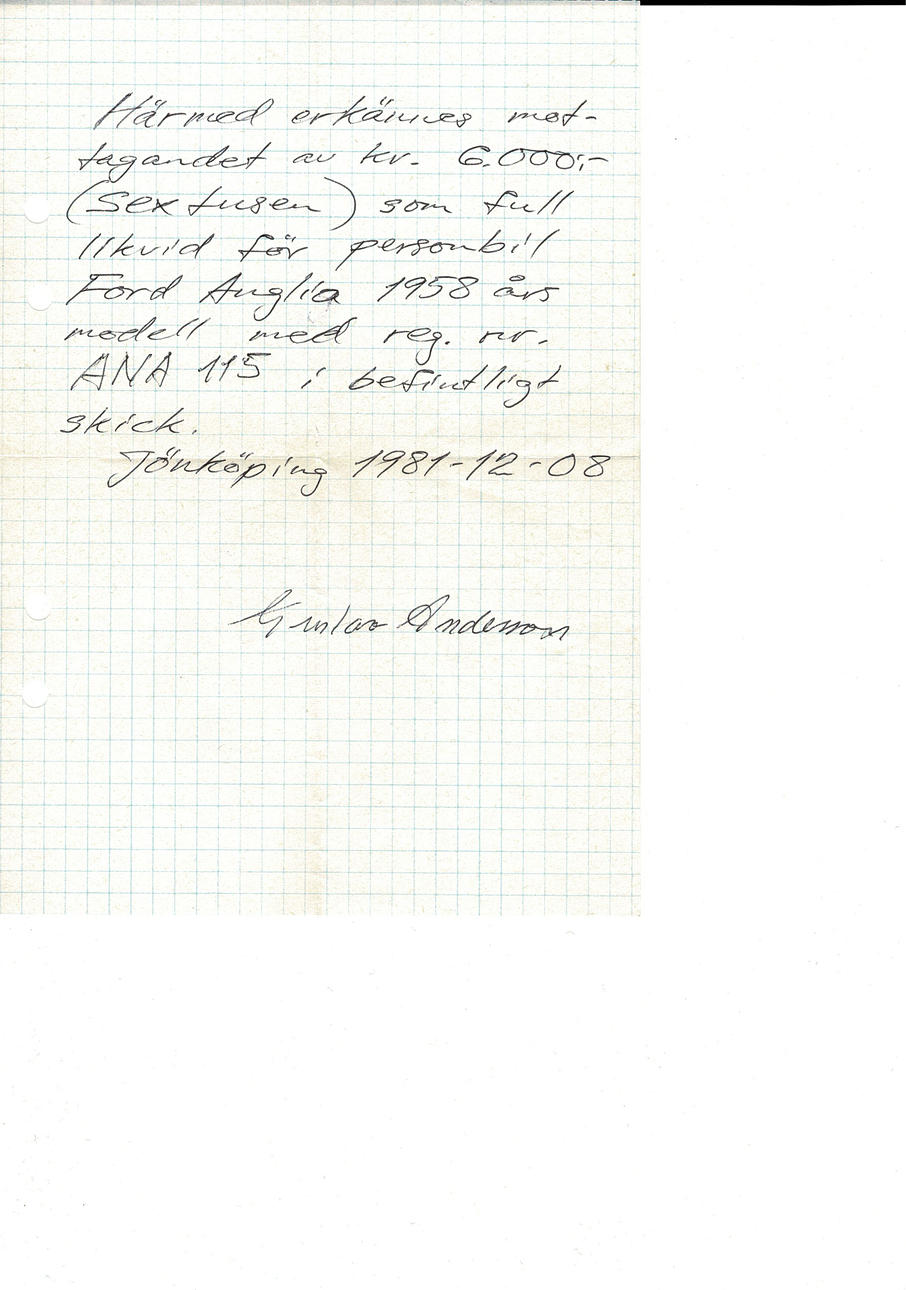 Härmed erkännes mot-
tagandet av kr. 6.000:-
(Sextusen) som full
likvid för personbil
Ford Anglia 1958 års
modell med reg. nr.
ANA 115 i befintligt
skick.
Jönköping 1981-12-08
Gustav Andersson